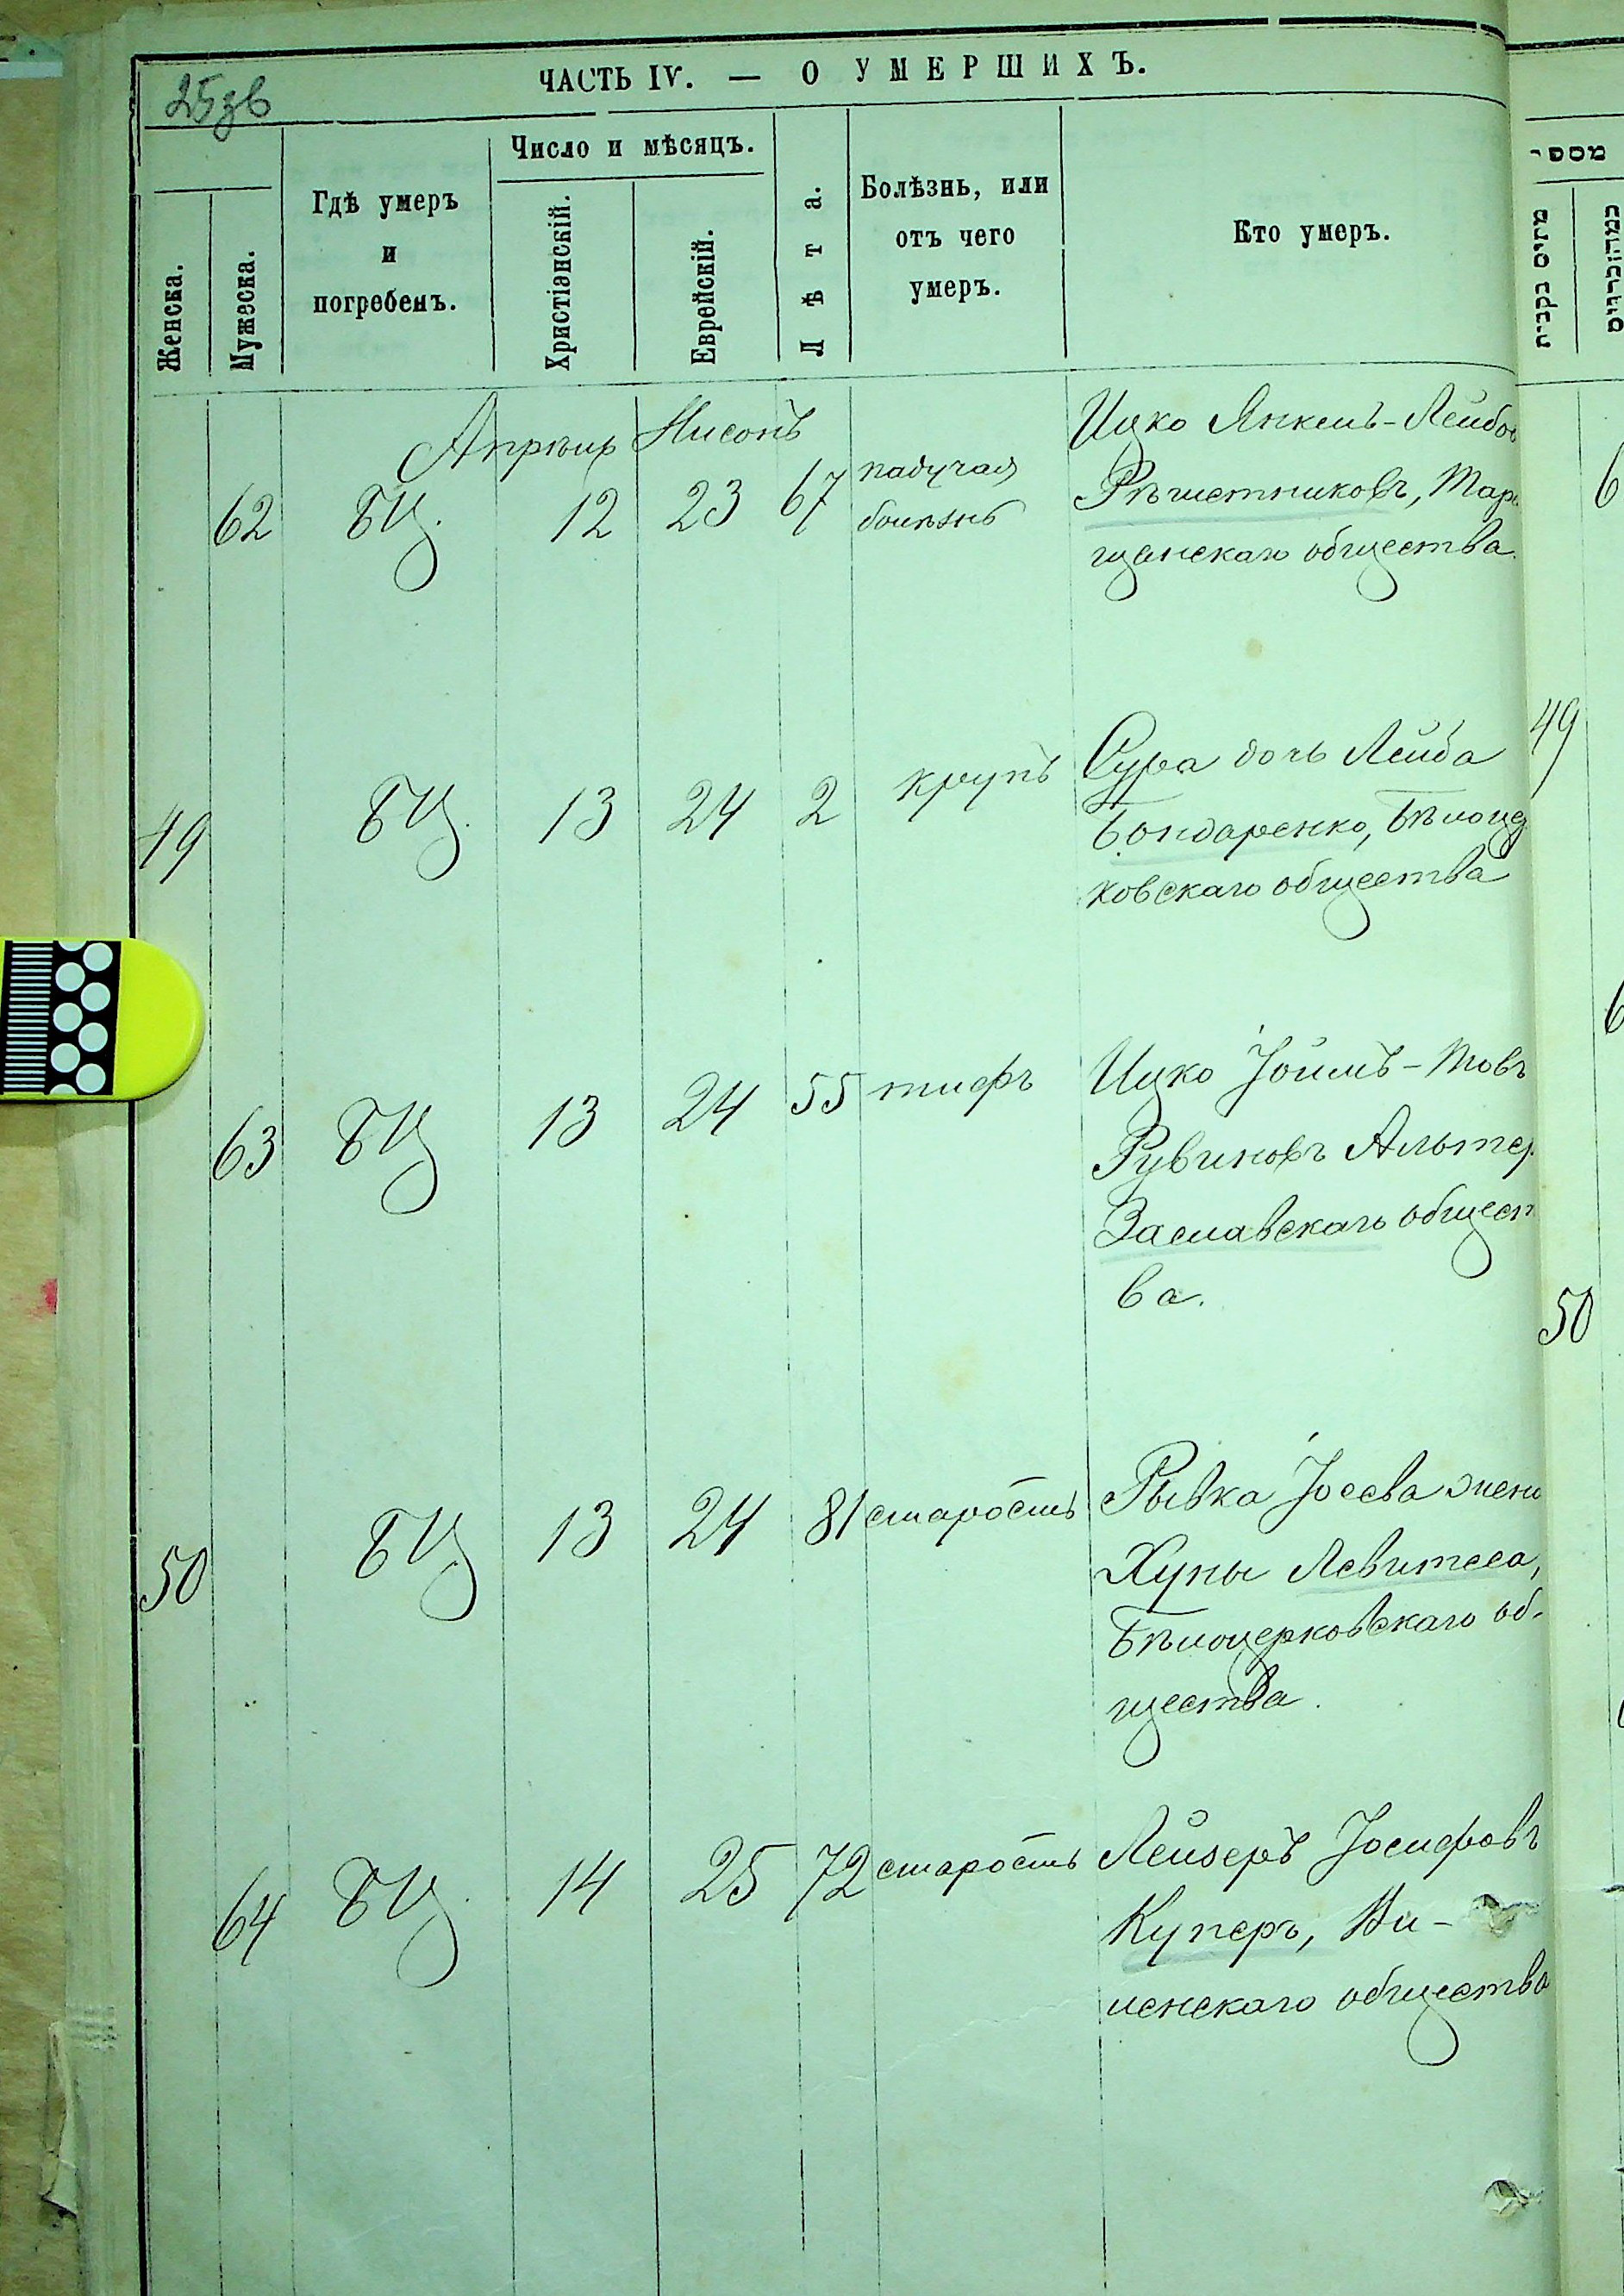 25зв
ЧАСТЬ IV. — О УМЕРШИХЪ.
Женска.
Мужеска.
Гдѣ умеръ
и
погребенъ.
Число и мѣсяцъ.
Христіанскій.
Еврейскій.
Лѣта.
Болѣзнь, или
отъ чего
умеръ.
Кто умеръ.
מספר
Апрѣль Нисонъ
62 БЦ. 12 23 67 падучая болѣзнь
Ицко Янкель-Лейбов
Рѣшетниковъ, Тара
щанскаго общества.
49 БЦ. 13 24 2 крупъ
Сура дочь Лейба
Бондаренко, Бѣлоце
ковскаго общества
49
63 БЦ 13 24 55 тифъ
Ицко Іойлъ-Товъ
Рувиновъ Альтер
Заславскаго общест
ва.
50
50 БЦ 13 24 81 старость
Рывка Іосева жена
Хуны Левитеса,
Бѣлоцерковскаго об-
щества.
64 БЦ. 14 25 72 старость
Лейзеръ Іосифовъ
Куперъ, Ви-
ленскаго общества